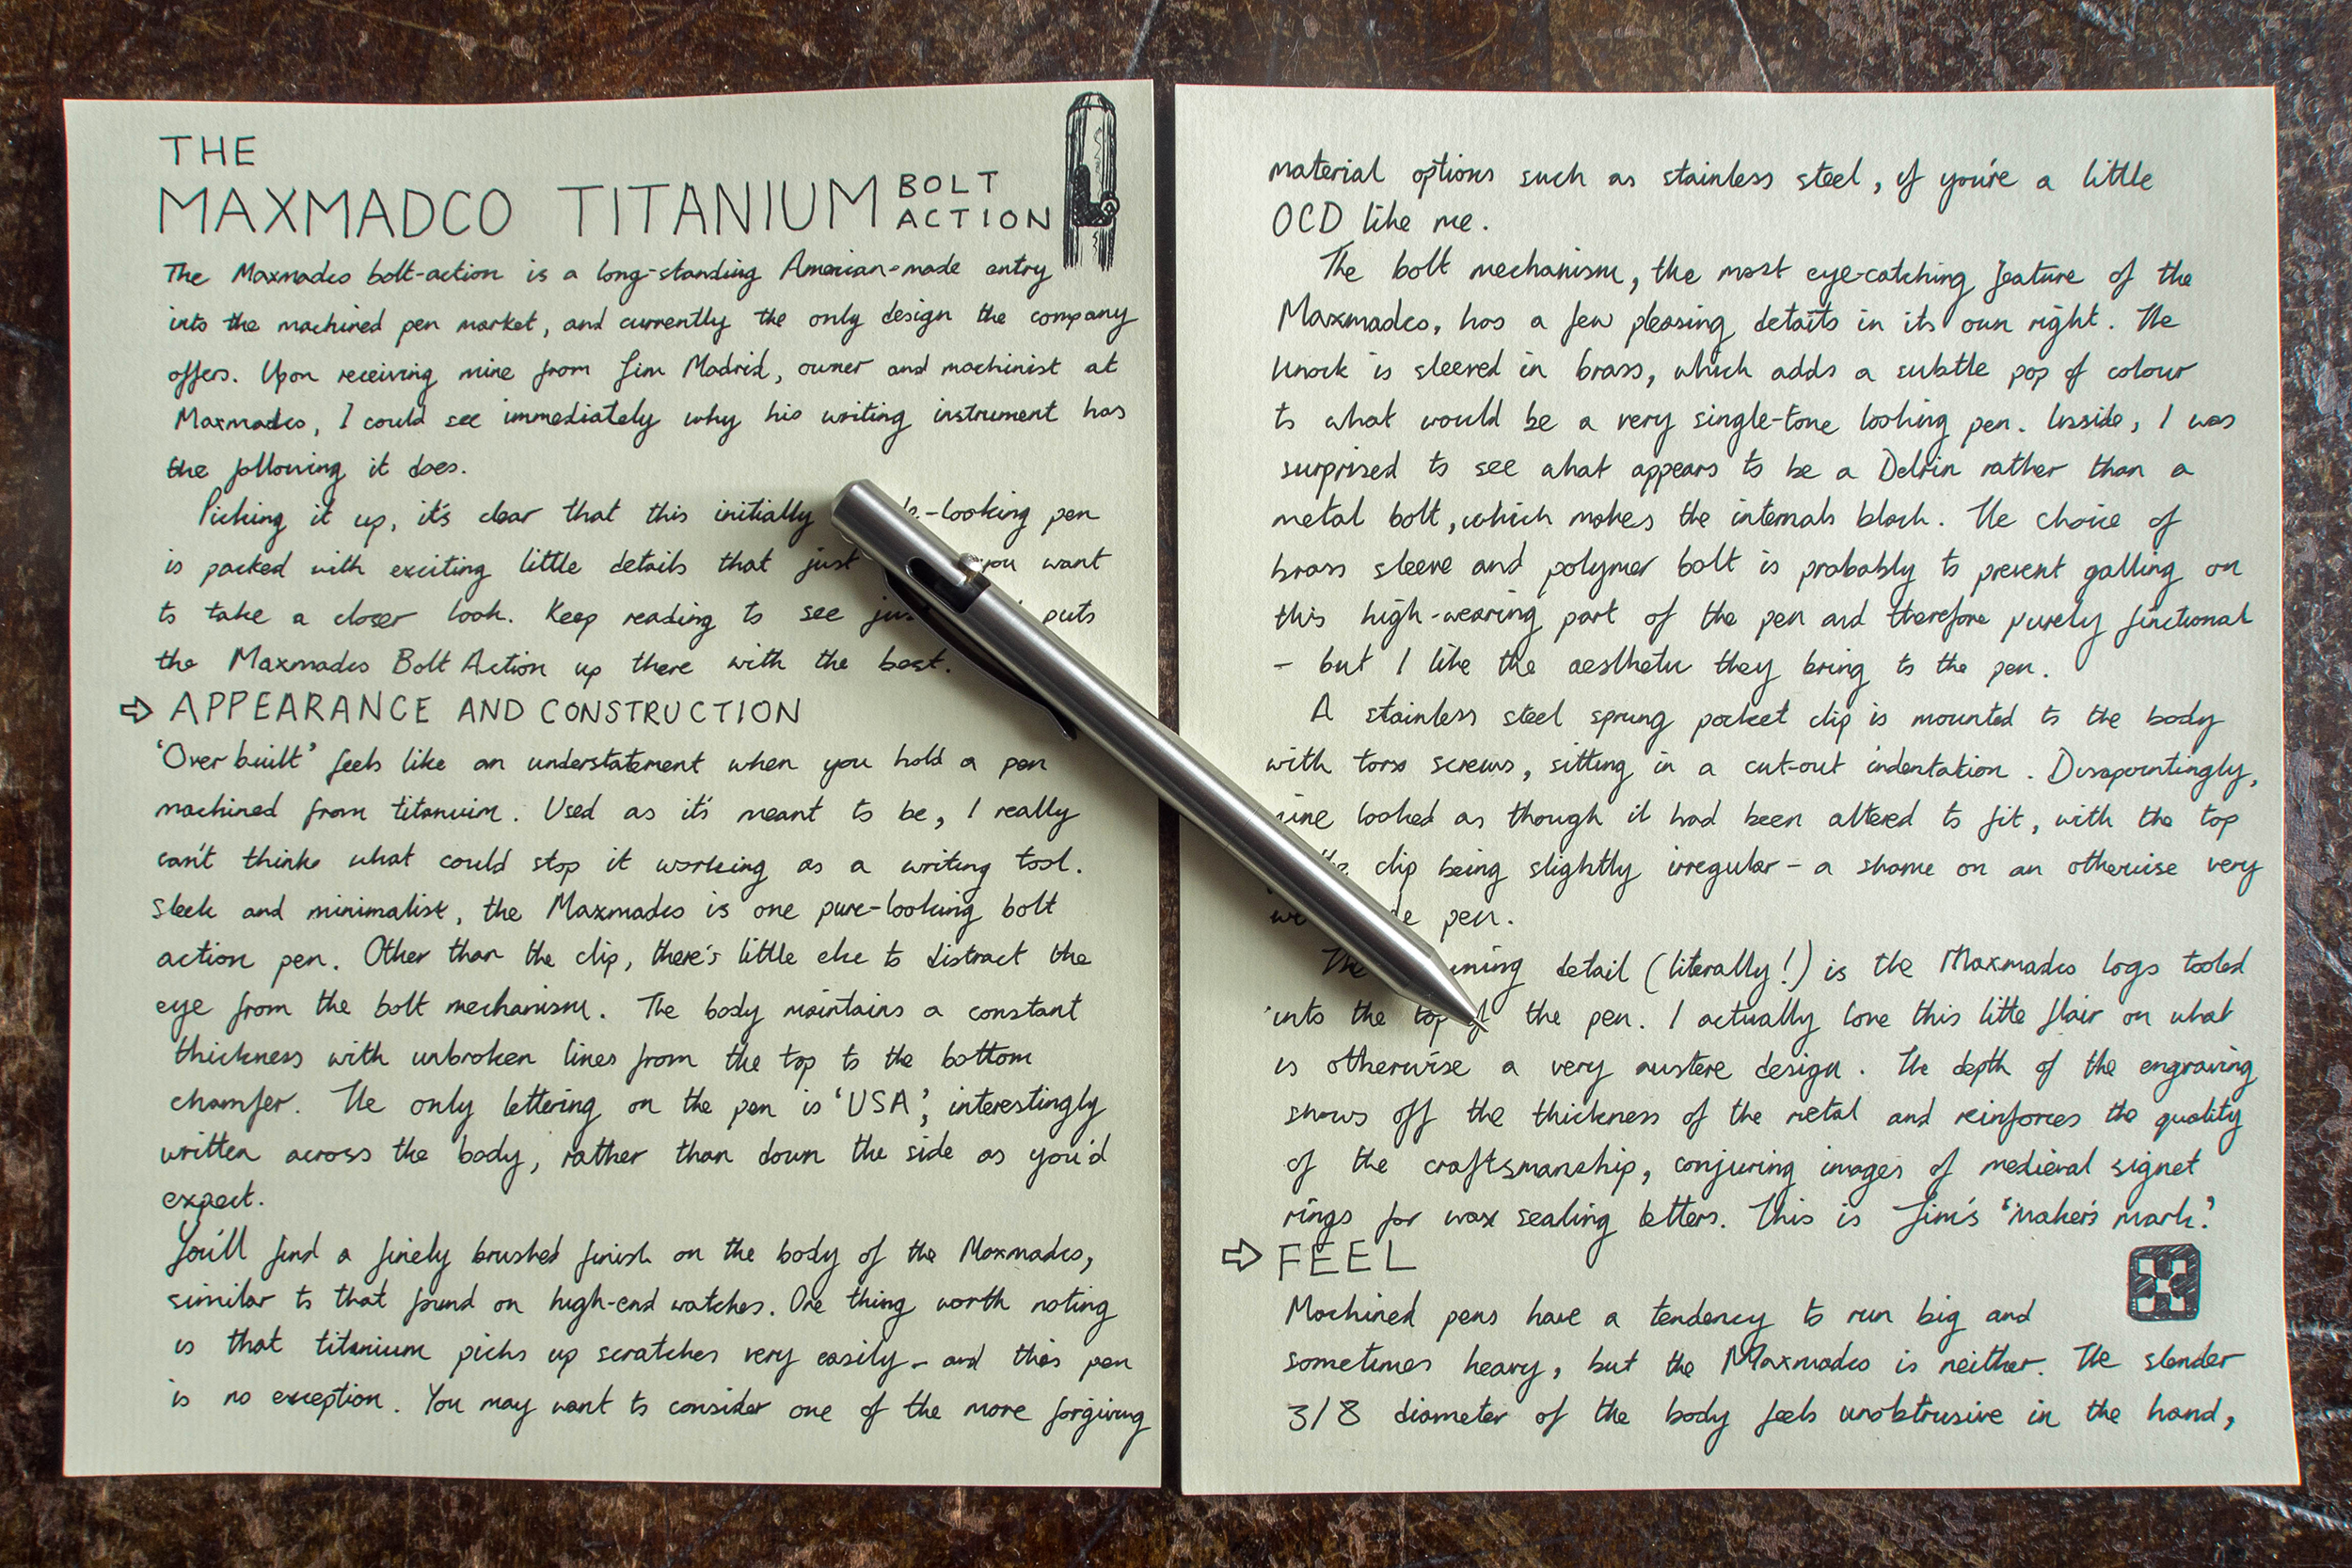 THE
MAXMADCO TITANIUM BOLT
ACTION
The Maxmadco bolt-action is a long-standing American-made entry
into the machined pen market, and currently the only design the company
offers. Upon receiving mine from Jim Madrid, owner and machinist at
Maxmadco, I could see immediately why his writing instrument has
the following it does.
Picking it up, it's clear that this initially -looking pen
is packed with exciting little details that just you want
to take a closer look. Keep reading to see puts
the Maxmadco Bolt Action up there with the best.
⇨ APPEARANCE AND CONSTRUCTION
'Over built' feels like an understatement when you hold a pen
machined from titanium. Used as it's meant to be, I really
can't think what could stop it working as a writing tool.
Sleek and minimalist, the Maxmadco is one pure-looking bolt
action pen. Other than the clip, there's little else to distract the
eye from the bolt mechanism. The body maintains a constant
thickness with unbroken lines from the top to the bottom
chamfer. The only lettering on the pen is 'USA', interestingly
written across the body, rather than down the side as you'd
expect.
You'll find a finely brushed finish on the body of the Maxmadco,
similar to that found on high-end watches. One thing worth noting
is that titanium picks up scratches very easily - and this pen
is no exception. You may want to consider one of the more forgiving
material options such as stainless steel, if you're a little
OCD like me.
The bolt mechanism, the most eye-catching feature of the
Maxmadco, has a few pleasing details in its own right. The
knock is sleeved in brass, which adds a subtle pop of colour
to what would be a very single-tone looking pen. Inside, I was
surprised to see what appears to be a Delrin rather than a
metal bolt, which makes the internals black. The choice of
brass sleeve and polymer bolt is probably to prevent galling on
this high-wearing part of the pen and therefore purely functional
- but I like the aesthetic they bring to the pen.
A stainless steel sprung pocket clip is mounted to the body
with torx screws, sitting in a cut-out indentation. Disapointingly,
mine looked as though it had been altered to fit, with the top
clip being slightly irregular - a shame on an otherwise very
pen.
The detail (literally!) is the Maxmadco logo tooled
into the top of the pen. I actually love this little flair on what
is otherwise a very austere design. The depth of the engraving
shows off the thickness of the metal and reinforces the quality
of the craftsmanship, conjuring images of medieval signet
rings for wax sealing letters. This is Jim's 'maker's mark.'
⇨ FEEL
Machined pens have a tendency to run big and
sometimes heavy, but the Maxmadco is neither. The slender
3/8 diameter of the body feels unobtrusive in the hand,